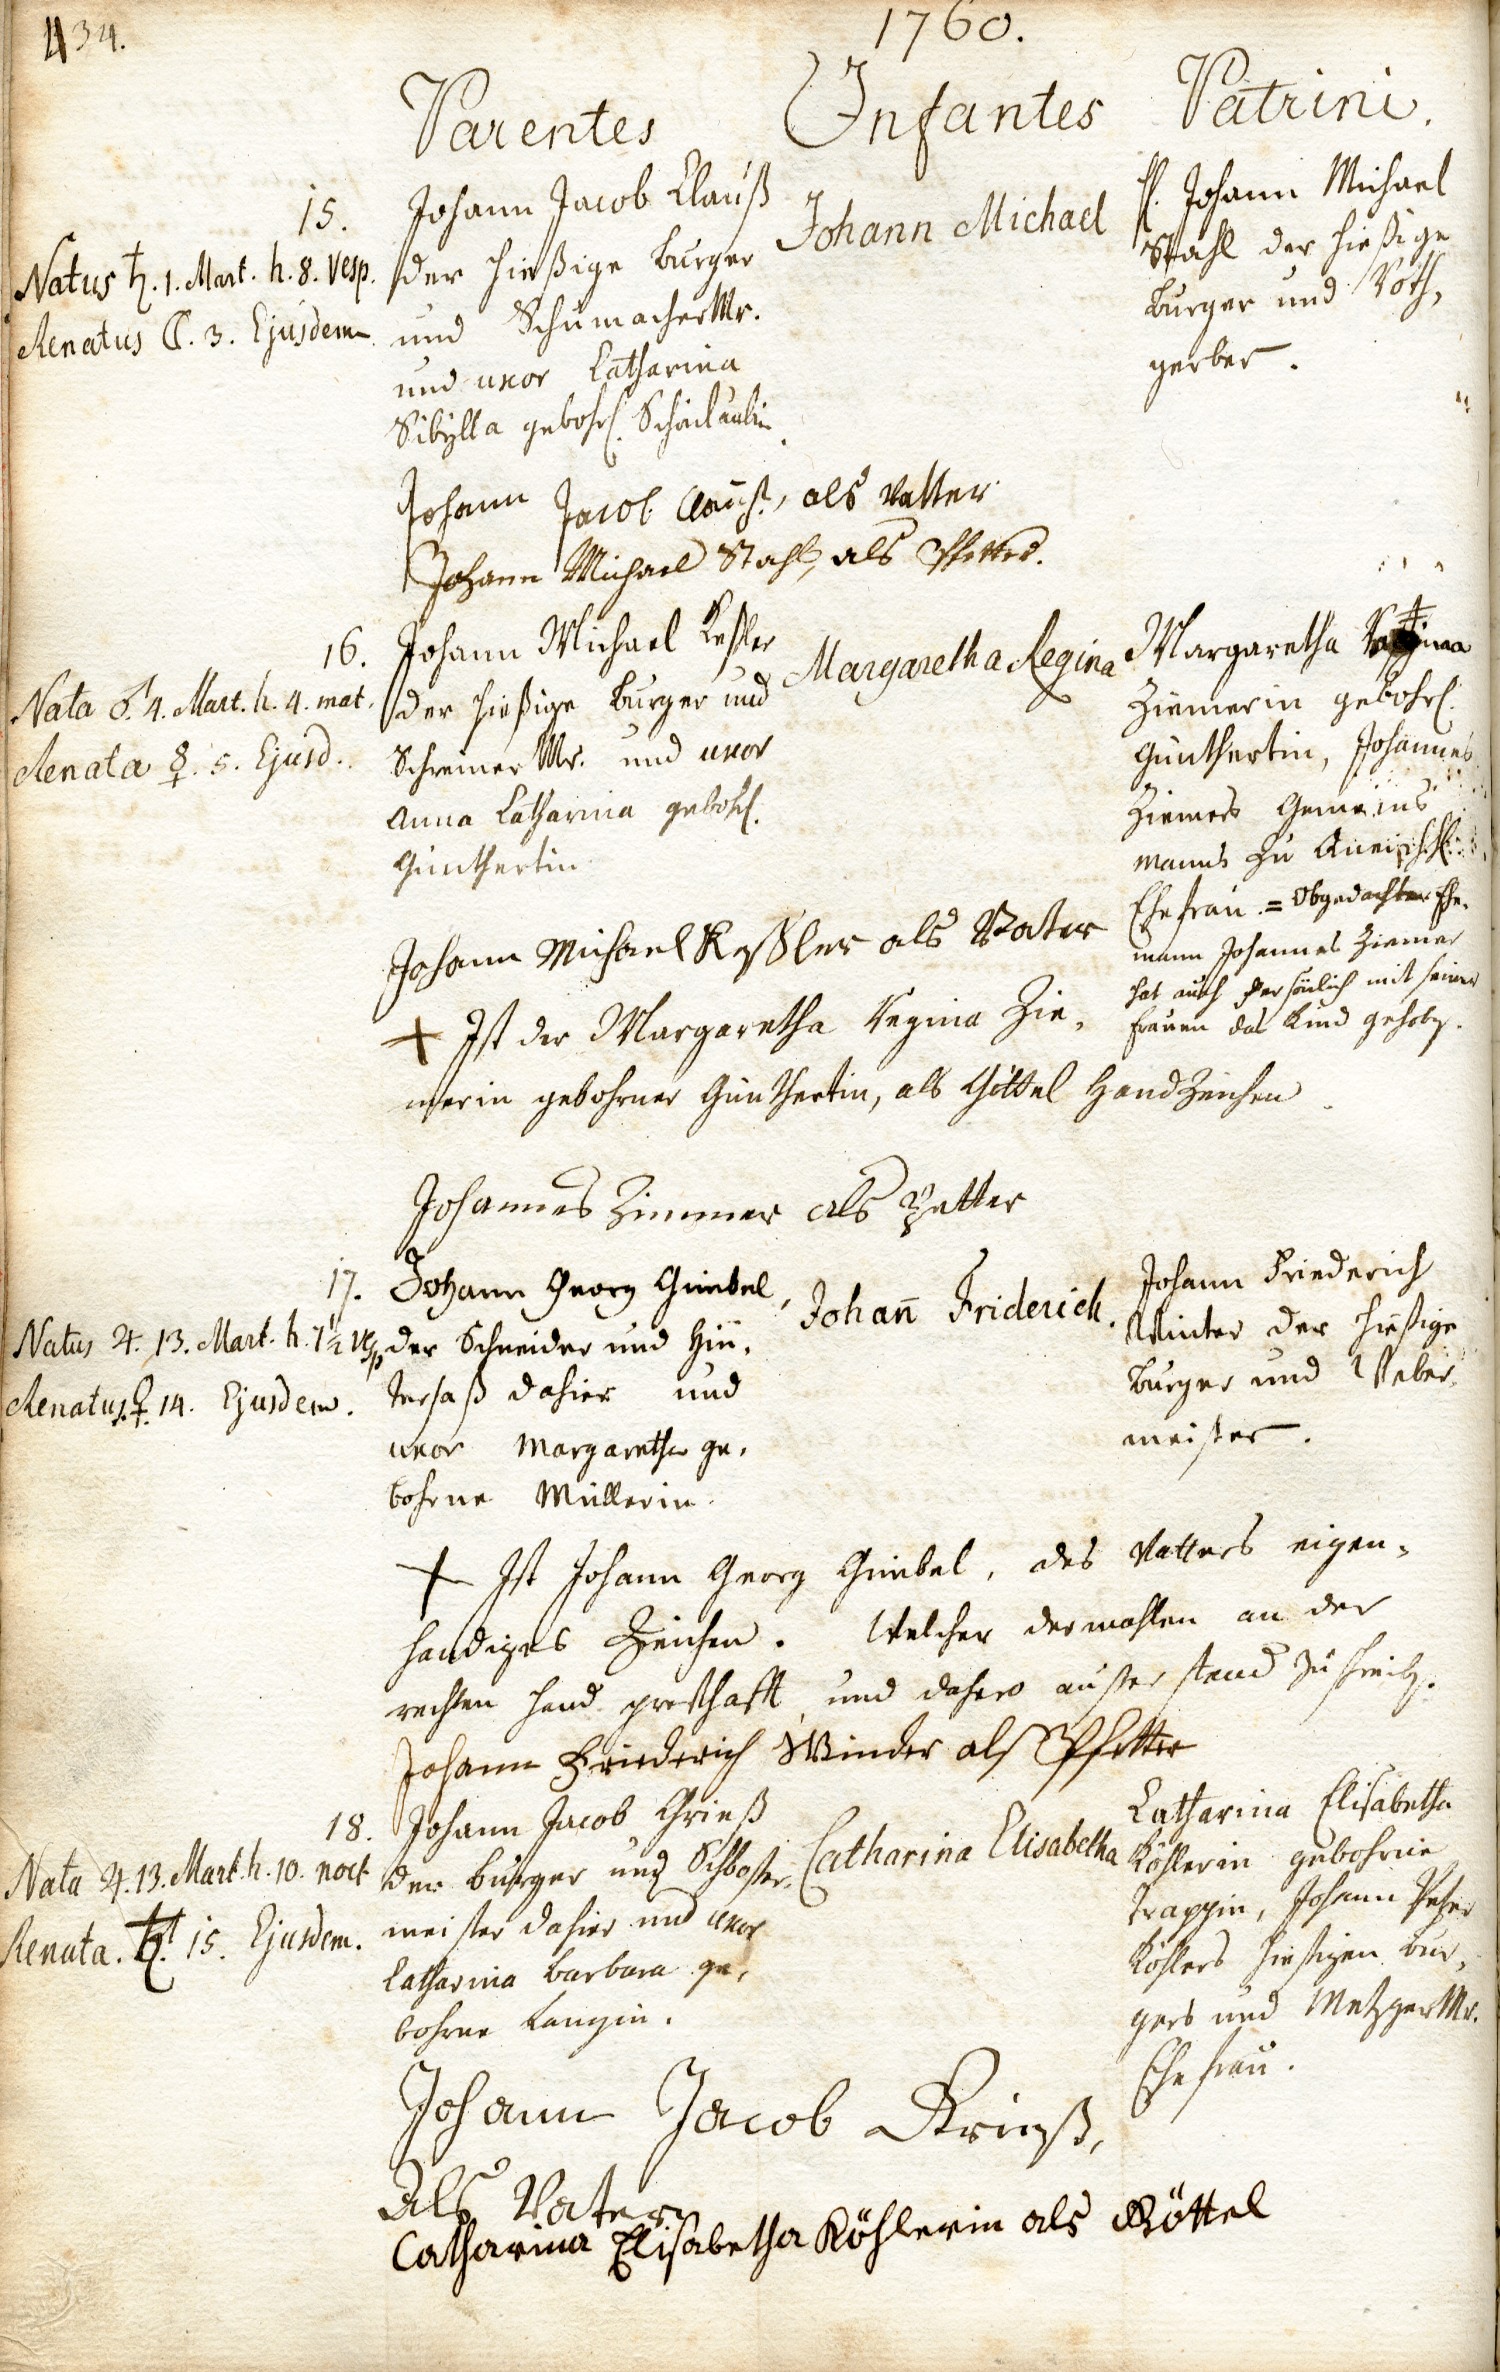 434.
1760.
Parentes Infantes Patrini.
15.
Natus ♄. 1. Mart. h. 8. Vesp.
Renatus ☾. 3. Ejusdem
Johann Jacob Clauß
der hießige burger
und SchumacherMr.
und uxor Catharina
Sibÿlla gebohr.
Johann Michael
H. Johann Michael
Stahl der hießige
burger und Roth,
gerber.
Johann Jacob Clauß, als Vatter
Johann Michael Stahl, als Pfetter.
16.
Nata ♂. 4. Mart. h. 4. mat.
Renata ☿. 5. Ejusd.
Johann Michael Keßler
der hießige burger und
Schreiner Mr. und uxor
Anna Catharina gebohr.
Günthertin
Margaretha Regina
Margaretha Regina
Ziemerin gebohr.
Günthertin, Johannes
Ziemers Gemeins
manns zu
Ehefrau. = Obgedachter Ehe,
mann Johannes Ziemer
hat auch persönlich mit seiner
frauen das Kind gehoben.
Johann Michael Keßler als Vater
+ Ist der Margaretha Regina Zie,
merin gebohrner Günthertin, als Göttel Handzeichen
Johannes Zimmer als Petter
17.
Natus ♃. 13. Mart. h. 7½ Vesp
Renatus ♀. 14. Ejusdem.
Johann Georg Giebel,
der Schneider und Hin,
tersaß dahier und
uxor Margaretha ge,
bohrne Müllerin.
Johan̄ Friderich.
Johann Friederich
Winter der hießige
burger und Weber,
meister.
+ Ist Johann Georg Giebel, des Vatters eigen,
händiges Zeichen. Welcher dermahlen an der
rechten hand presthafft und dahero außer stand zu schreiben.
Johann Friederich Winder als Pfetter
18.
Nata ♃. 13. Mart. h. 10. noct
Renata. ♄. 15. Ejusdem.
Johann Jacob Grieß
der burger und Schloßer,
meister dahier und uxor
Catharina barbara ge,
bohrne Langin.
Catharina Elisabetha
Catharina Elisabetha
Köhlerin gebohrne
Trappin, Johann Peter
Köhlers hießigen bur,
gers und MetzgerMr.
Ehefrau.
Johann Jacob Krieß,
als Vater
Catharina Elisabetha Köhlerin als Göttel